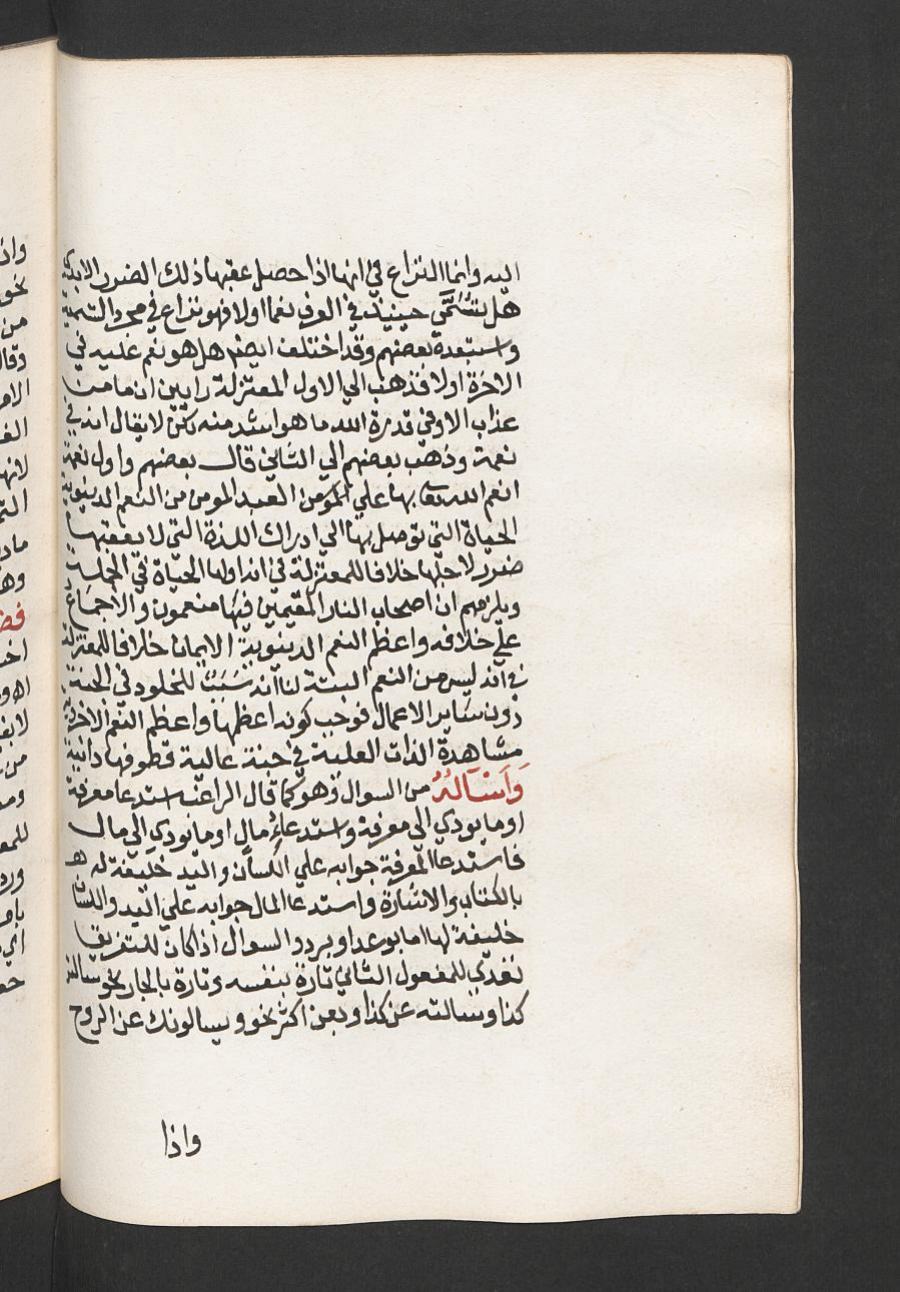 اليه وانما النزاع في انها اذا حصل عقبها ذلك الضرر الابدي
هل تسمي حينيذ في العرف نعما اولا فهو نزاع في مجرد التسمية
واستبعده بعضهم وقد اختلف ايضا هل هو نعم عليه في
الاخرة اولا فذهب الي الاول المعتزلة رايين ان ما من
عذاب الا وفي قدرة الله ما هو اشد منه لكن لا يقال انه في
نعمة وذهب بعضهم الي الثاني قال بعضهم واول نعمة
انعم الله تعا بها علي المومن العبد المومن من النعم الدنيوية
الحياة التي توصل بها الي ادراك اللذة التي لا يعقبها
ضرر لاجلها خلافا للمعتزلة في انه اولها الحياة في الجملة
ويلزمهم ان اصحاب النار المقيمين فيها منعمون والاجماع
علي خلافه واعظم النعم الدنيوية الايمان خلافا للمعتزلة
في انه ليس من النعم البتة لنا انه سبب للخلود في الجنة
دون ساير الاعمال فوجب كونه اعظمها واعظم النعم الاخروية
مشاهدة الذات العلية في جنة عالية قطوفها دانية
واساله من السوال وهو كما قال الراغب استدعا معرفة
او ما يودي الي معرفة واستدعاء مال او ما يودي الي مال
فاستدعا المعرفة جوابه علي اللسان واليد خليفة له
بالكتاب والاشارة واستدعا المال جوابه علي اليد واللسا
خليفة لها اما بوعد او برد والسوال اذا كان للتعريف
تعدي للمفعول الثاني تارة بنفسه وتارة بالجار نحو سالته
كذا وسالته عن كذا وبعن اكثر نحو ويسالونك عن الروح
واذا